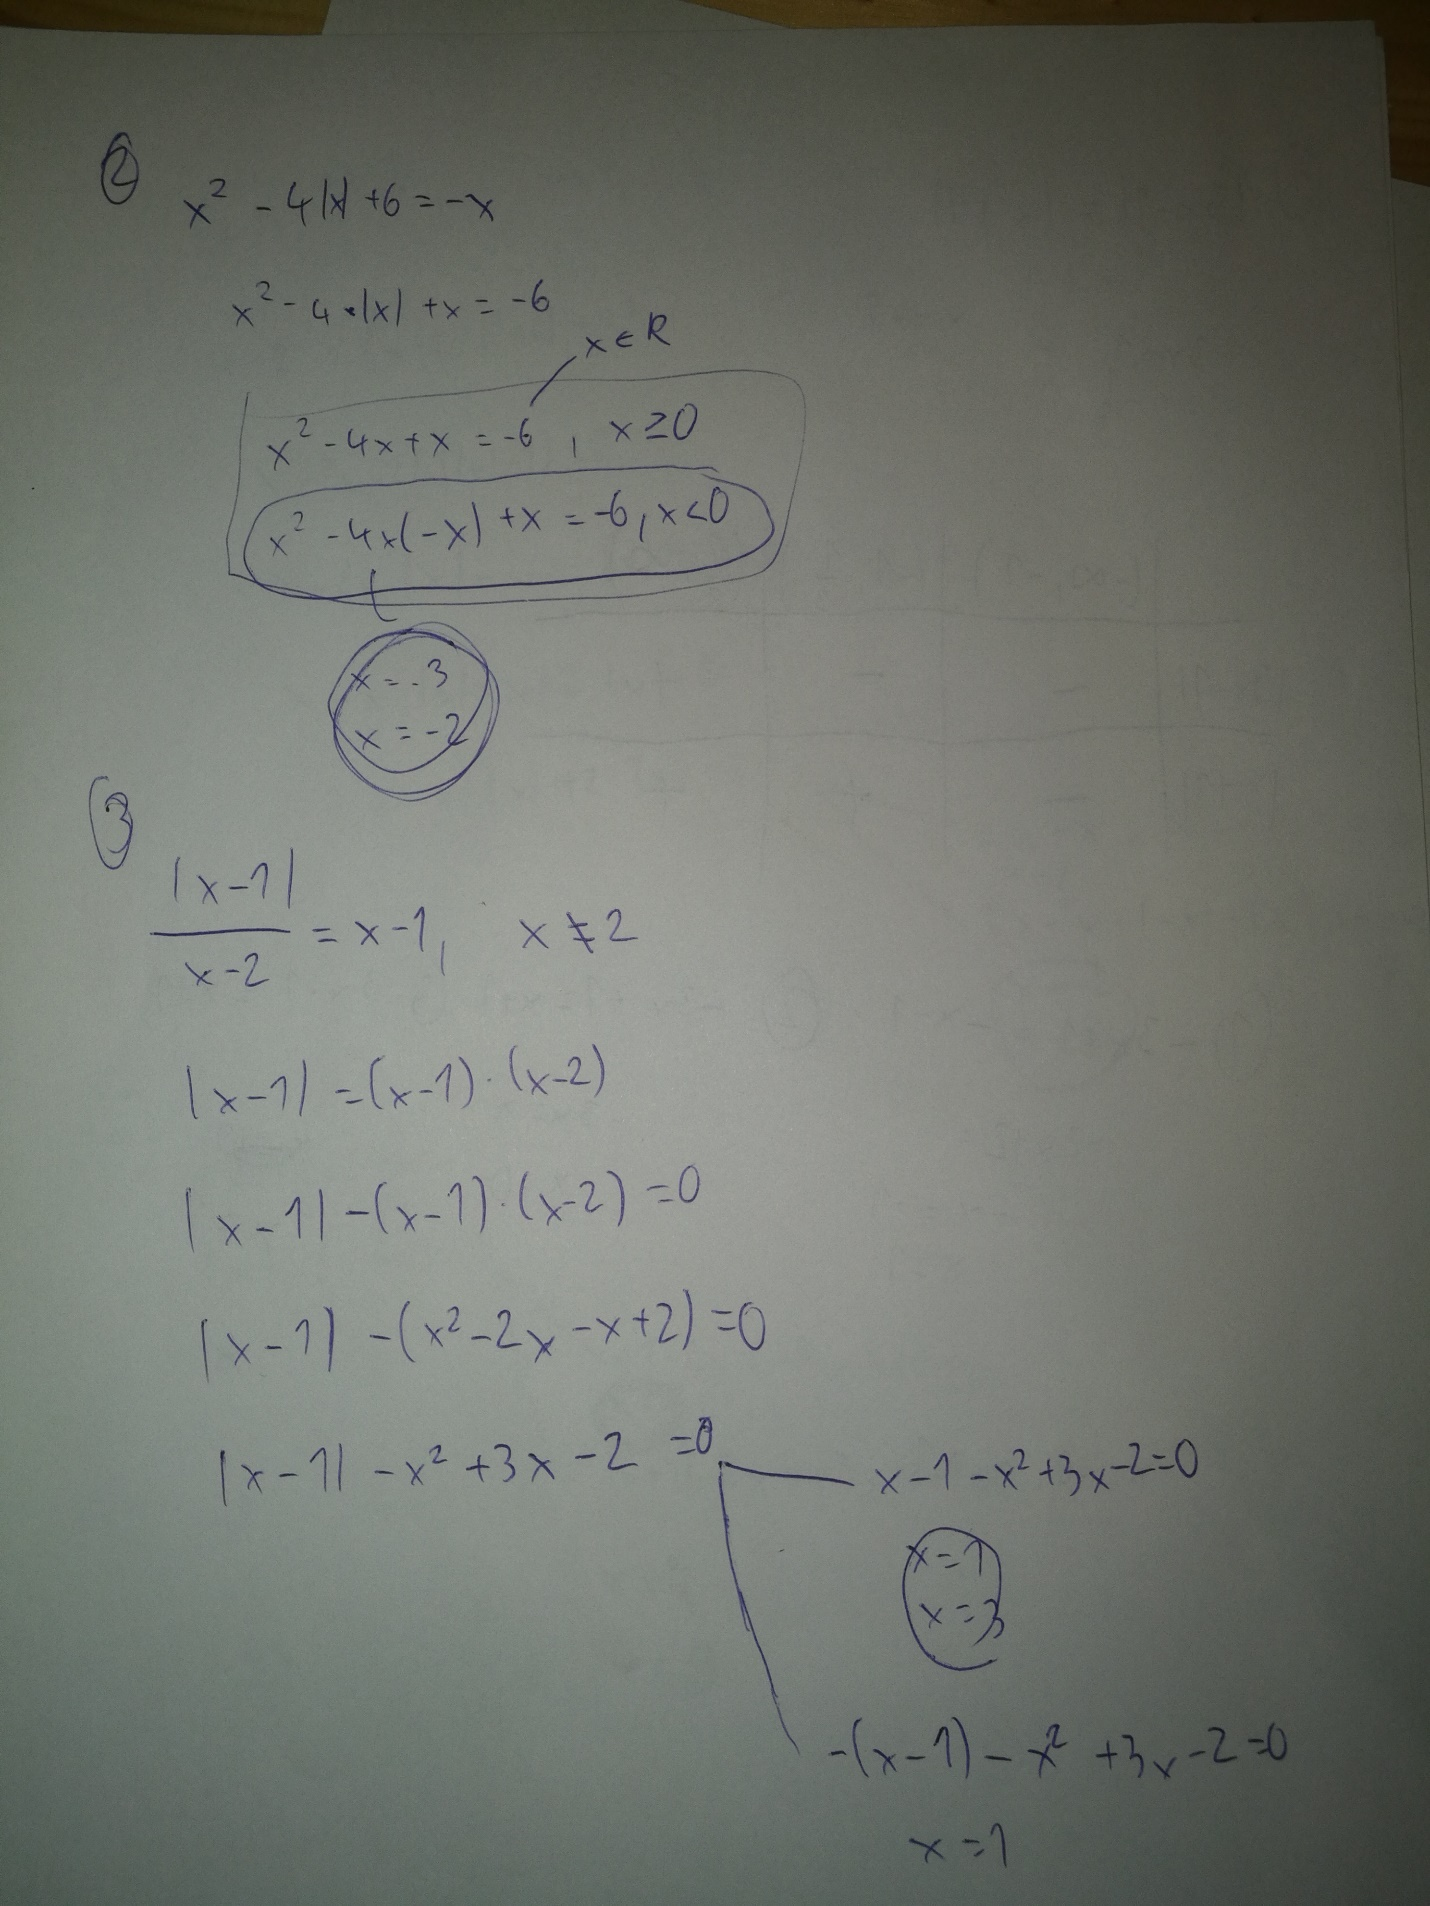 2
x² - 4|x| + 6 = -x
x² - 4 · |x| + x = -6
x ∈ R
x² - 4x + x = -6 , x ≥ 0
x² - 4x(-x) + x = -6, x < 0
x = -3
x = -2
3
|x-1| / x-2 = x-1, x ≠ 2
|x-1| = (x-1) · (x-2)
|x-1| - (x-1) · (x-2) = 0
|x-1| - (x² - 2x - x + 2) = 0
|x-1| - x² + 3x - 2 = 0
x - 1 - x² + 3x - 2 = 0
x = 1
x = 3
-(x-1) - x² + 3x - 2 = 0
x = 1